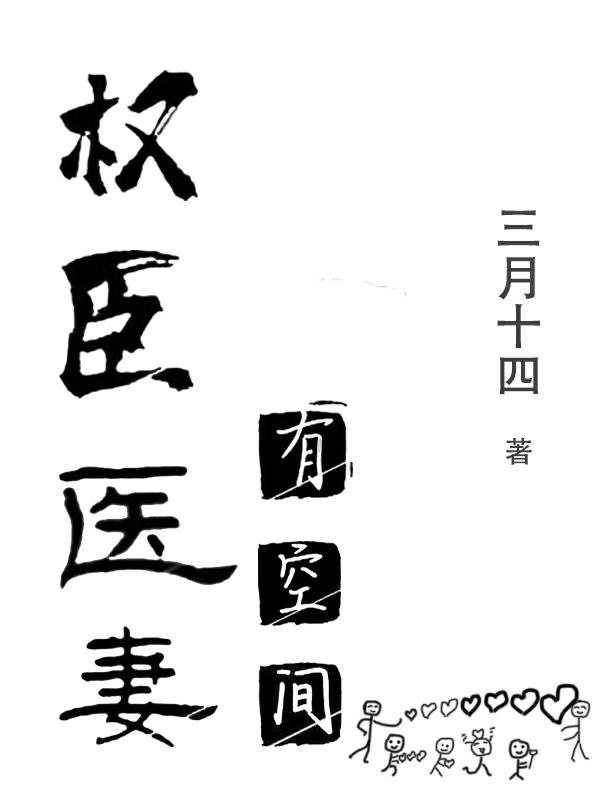 权臣医妻
有空间
三月十四 著